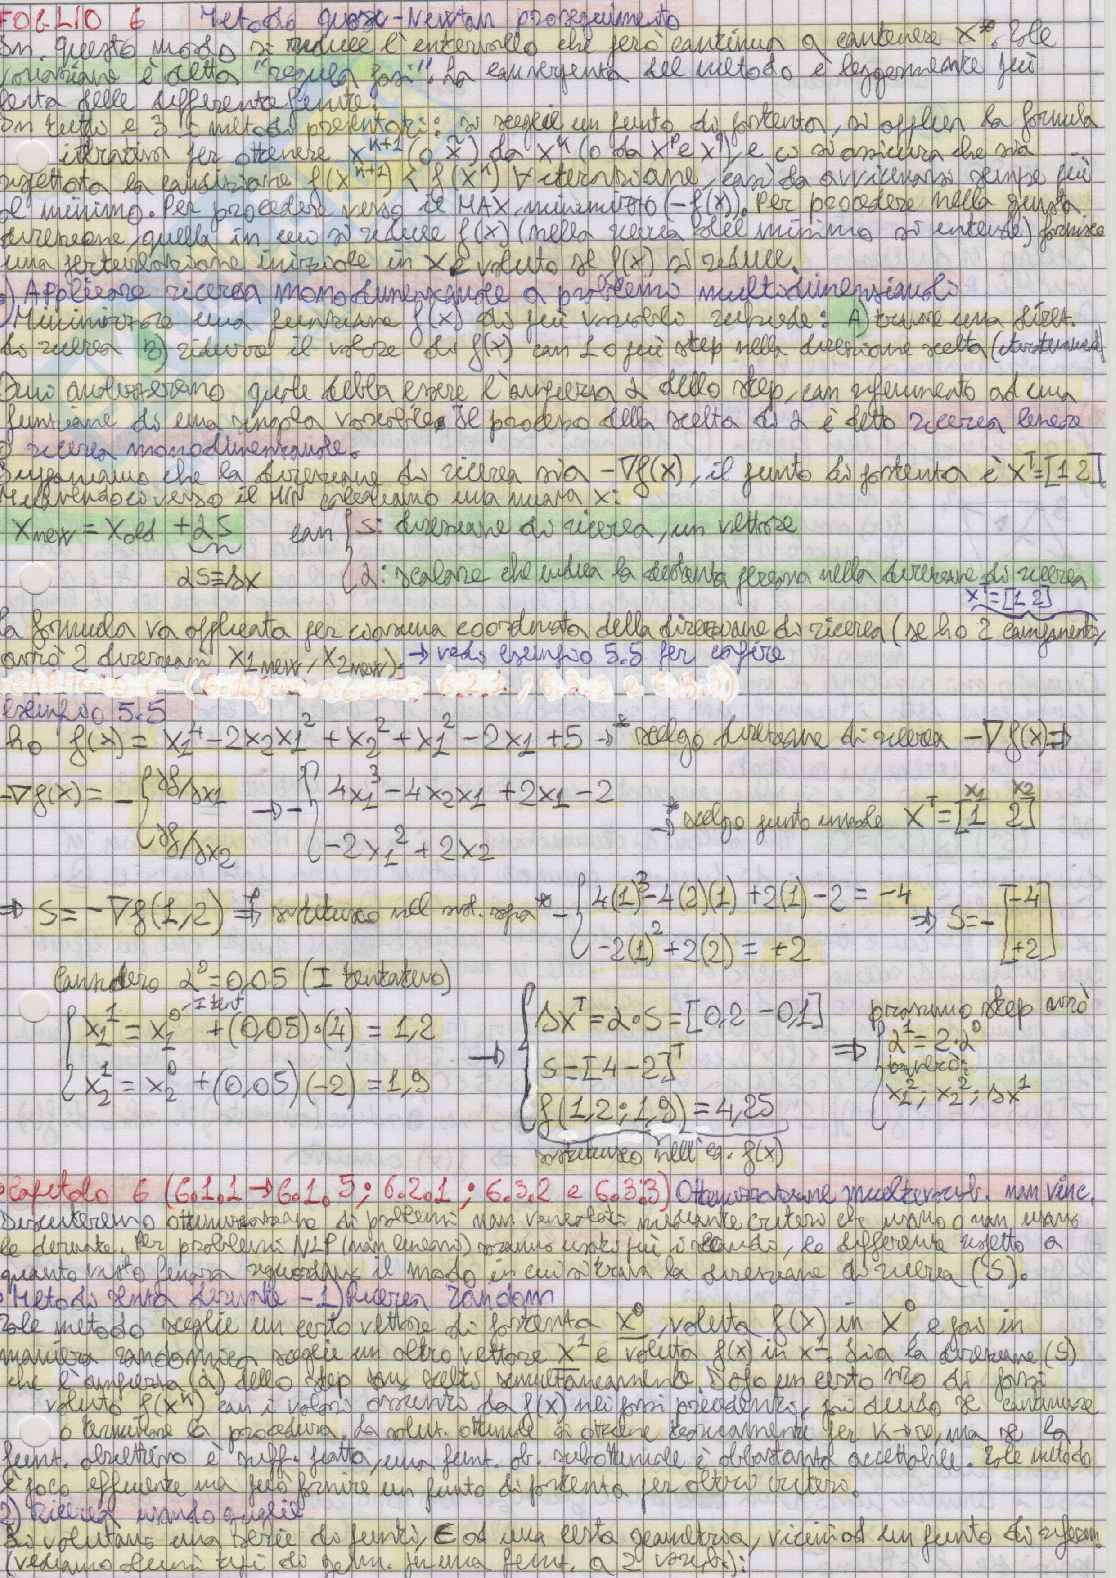 FOGLIO 6 Metodo quasi-Newton proseguimento
In questo modo si riduce l'intervallo che però continua a contenere x*. Tale
variazione è detta "regula falsi". La convergenza del metodo è leggermente più
lenta delle differenze finite.
In tutti e 3 i metodi presentati: si sceglie un punto di partenza, si applica la formula
iterativa per ottenere x^(k+1) (o x̃) da x^k (o da x^p e x^q), e ci si assicura che sia
rispettata la condizione f(x^(k+1)) < f(x^k) ∀ iterazione, così da avvicinarsi sempre più
al minimo. Per procedere verso il MAX minimizzo (-f(x)). Per procedere nella giusta
direzione, quella in cui si riduce f(x) (nella ricerca del minimo si intende) fornisco
una perturbazione iniziale in x e valuto se f(x) si riduce.
Applicare ricerca monodimensionale a problemi multidimensionali
Minimizzare una funzione f(x) di più variabili richiede: A) trovare una direz.
di ricerca B) ridurre il valore di f(x) con 1 o più step nella direzione scelta
Qui analizzeremo quale debba essere l'ampiezza α dello step, con riferimento ad una
funzione di una singola variabile. Il processo della scelta di α è detto ricerca lineare
o ricerca monodimensionale.
Supponiamo che la direzione di ricerca sia -∇f(x), il punto di partenza è x^T=[1 2]
Muovendoci verso il MIN calcoliamo una nuova x:
x_new = x_old + αS con { S: direzione di ricerca, un vettore
αS=Δx { α: scalare che indica la distanza percorsa nella direzione di ricerca
x^T=[1 2]
La formula va applicata per ciascuna coordinata della direzione di ricerca (se ho 2 componenti,
avrò 2 direzioni x1new, x2new). → vedi esempio 5.5 per capire
Esempio 5.5
Ho f(x) = x1^4 - 2x2x1^2 + x2^2 + x1^2 - 2x1 + 5 →* scelgo direzione di ricerca -∇f(x) ⇒
-∇f(x) = -{ ∂f/∂x1 → -{ 4x1^3 - 4x2x1 + 2x1 - 2
{ ∂f/∂x2 { -2x1^2 + 2x2 →* scelgo punto iniziale x^T=[1 2] x1 x2
⇒ S = -∇f(1,2) ⇒* sostituisco nel sist. sopra* -{ 4(1)^3 - 4(2)(1) + 2(1) - 2 = -4 → S = -[-4
{ -2(1)^2 + 2(2) = +2 +2]
Considero α^0 = 0,05 (I tentativo)
{ x1^1 = x1^0 + (0,05)•(4) = 1,2 I tent
{ x2^1 = x2^0 + (0,05)(-2) = 1,9
→ { Δx^T = α•S = [0,2 -0,1]
S = [4 -2]^T
f(1,2; 1,9) = 4,25
sostituisco nell'eq. f(x)
⇒ prossimo step avrò
α^1 = 2•α^0
x1^2, x2^2; Δx^1
Capitolo 6 (6.1.1 → 6.1.5; 6.2.1; 6.3.2 e 6.3.3) Ottimizzazione multivariab. non vinc.
Discuteremo ottimizzazione di problemi non vincolati mediante criteri che usano o non usano
le derivate. Per problemi NLP (non lineari) saranno usati più i secondi, la differenza rispetto a
quanto visto finora riguarda il modo in cui si trova la direzione di ricerca (S).
• Metodi senza derivate - 1) Ricerca random
Tale metodo sceglie un certo vettore di partenza x^0, valuta f(x) in x^0 e poi in
maniera randomica sceglie un altro vettore x^1 e valuta f(x) in x^1. Sia la direzione (S)
che l'ampiezza (α) dello step sono scelti simultaneamente. Dopo un certo nro di passi
valuto f(x^k) con i valori assunti da f(x) nei passi precedenti, poi decido se continuare
o terminare la procedura. La soluz. ottimale si ottiene teoricamente per k→∞, ma se la
funz. obiettivo è suff. piatta, una funz. ob. subottimale è abbastanza accettabile. Tale metodo
è poco efficiente ma può fornire un punto di partenza per altri criteri.
2) Ricerca usando griglie
Si valutano una serie di punti, ∈ ad una certa geometria, vicini ad un punto di riferim.
(vediamo alcuni tipi di geom. per una funz. a 2 variab.):